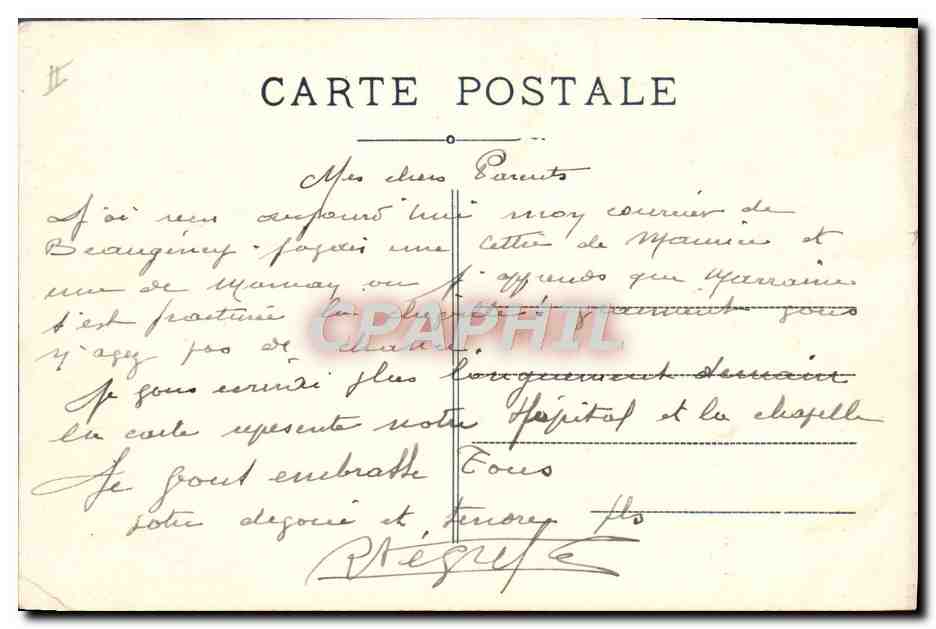 II
CARTE POSTALE
Mes chers Parents
J'ai reçu aujourd'hui mon courrier de
Beaugency. une lettre de Maurice et
une de Maman ou j'apprends que Marraine
s'est fracturé la cheville! vraiment vous
n'avez pas de chance.
Je vous ecrirai plus longuement demain
la carte represente notre Hôpital et la chapelle
Je vous embrasse Tous
votre devoué et tendre fils
CPAPHIL